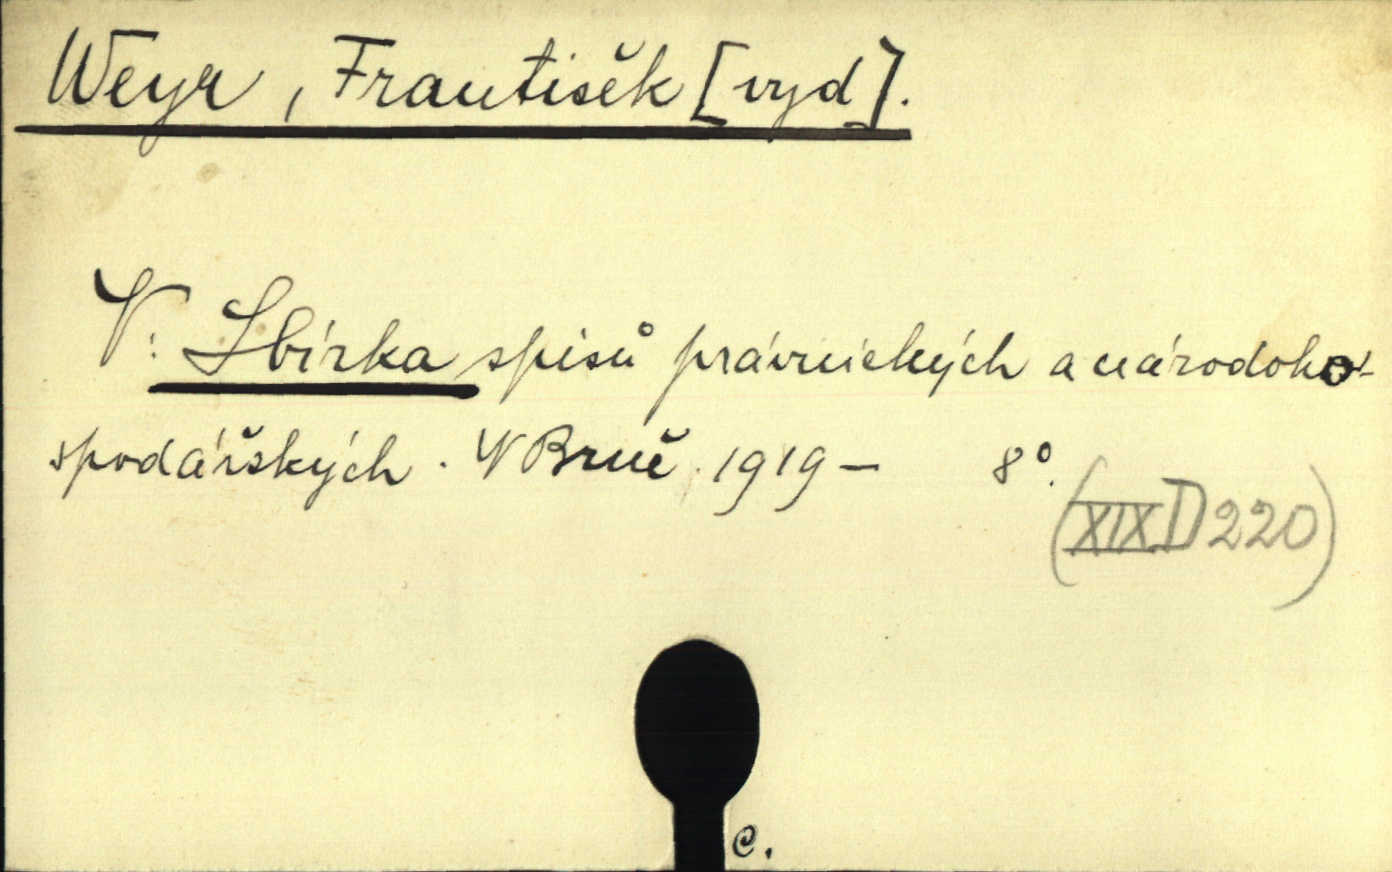 Weyr, František [vyd].
V: Sbírka spisů právnických a národoho-
spodářských. V Brně. 1919– 8°.
(XIX D 220)
C.